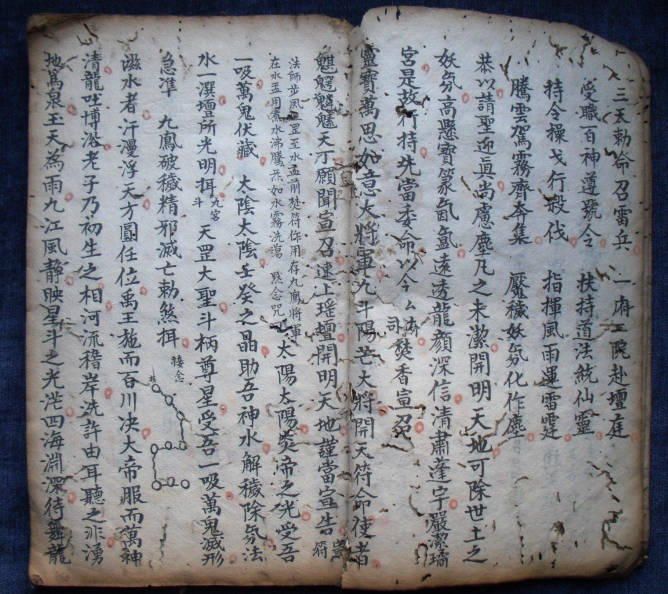 三天勅命召雷兵　一府二院赴壇庭
受職百神遵號令　扶持道法統仙靈
持令操戈行殺伐　指揮風雨運雷霆
騰雲駕霧齊奔集　壓穢妖氛化作塵
恭以請聖迎真尚慮塵凡之未潔開明天地可除世土之
妖氛高懸寳篆氤氳遠透龍顔深信清肅蓬宇嚴潔
宮是故行持先當委命以今 焚香宣召
靈寳萬思如意大將軍九斗陽芒大將開天符命使者
魑魅天丁願聞宣召速上瑶壇開明天地謹當宣告
法師步風罡至水盂前焚符作用存九鳳將軍
在水盂用濁水沸騰共如水霧洗蕩　默念咒
太陽太陽炎帝之光受吾
一吸萬鬼伏藏　太陰太陰壬癸之晶助吾神水解穢除氛法
水一潠壇所光明揖　九宮　天罡大聖斗柄尊星受吾一吸萬鬼滅形
急準　九鳳破穢精邪滅亡勅煞揖　接念
滋水者汗漫浮天方圓任位禹王施而百川决大帝服而萬神
清龍吐博浴老子乃初生之相河流稽岸洗許由耳聽之非湧
地為泉玉天為雨九江風静映星斗之光 四海淵深待舞龍